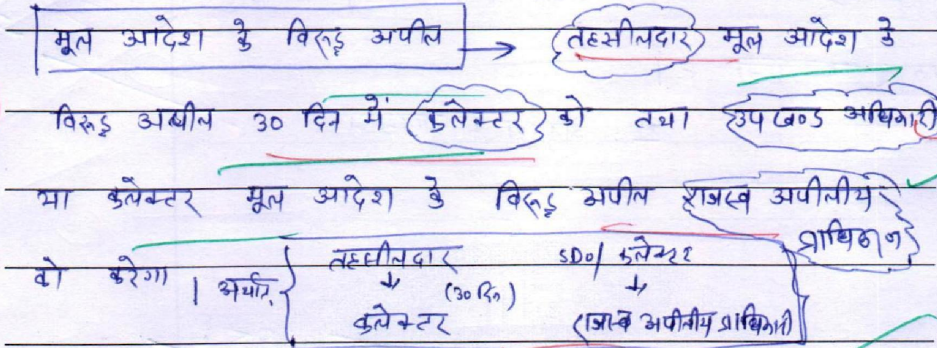 मूल आदेश के विरूद्ध अपील → तहसीलदार मूल आदेश के
विरूद्ध अपील 30 दिन में कलेक्टर को तथा उपखण्ड अधिकारी
या कलेक्टर मूल आदेश के विरूद्ध अपील राजस्व अपीलीय
प्राधिकारी
को करेगा। अर्थात्
तहसीलदार SDO/कलेक्टर
↓ (30 दिन) ↓
कलेक्टर राजस्व अपीलीय प्राधिकारी